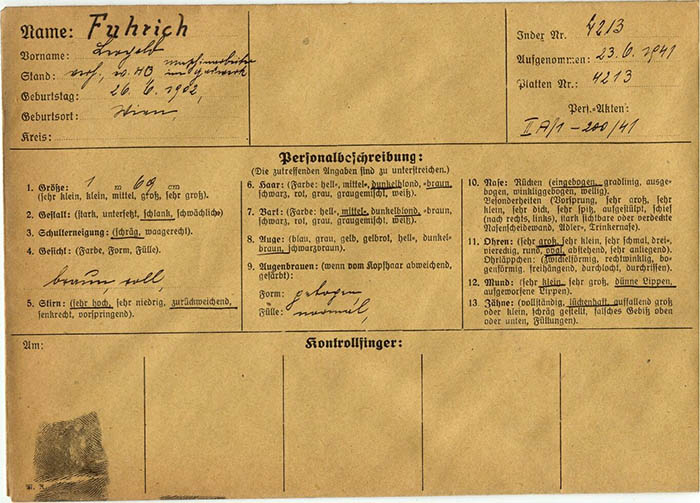 Name: Fuhrich
Vorname: Leopold
Stand: verh.
Geburtstag: 26. 6. 1902,
Geburtsort: Wien,
Kreis:
Index Nr. 4213
Aufgenommen: 23. 6. 1941
Platten Nr.: 4213
Pers.-Akten:
II A/1 - 200/41
Personalbeschreibung:
(Die zutreffenden Angaben sind zu unterstreichen.)
1. Größe: 1 m 69 cm
(sehr klein, klein, mittel, groß, sehr groß).
2. Gestalt: (stark, untersetzt, schlank, schwächlich)
3. Schulterneigung: (schräg, waagerecht).
4. Gesicht: (Farbe, Form, Fülle).
braun, voll,
5. Stirn: (sehr hoch, sehr niedrig, zurückweichend,
senkrecht, vorspringend).
6. Haar: (Farbe: hell-, mittel-, dunkelblond, -braun,
schwarz, rot, grau, graugemischt, weiß).
7. Bart: (Farbe: hell-, mittel-, dunkelblond, -braun,
schwarz, rot, grau, graugemischt, weiß).
8. Auge: (blau, grau, gelb, gelbrot, hell-, dunkel-
braun, schwarzbraun).
9. Augenbrauen: (wenn vom Kopfhaar abweichend,
gefärbt):
Form: gebogen
Fülle: normal,
10. Nase: Rücken (eingebogen, gradlinig, ausge-
bogen, winkliggebogen, wellig).
Besonderheiten (Vorsprung, sehr groß, sehr
klein, sehr dick, sehr spitz, aufgestülpt, schief
(nach rechts, links), stark sichtbare oder verdeckte
Nasenscheidewand, Adler-, Trinkernase).
11. Ohren: (sehr groß, sehr klein, sehr schmal, drei-,
viereckig, rund, oval, sehr abstehend, sehr anliegend).
Ohrläppchen: (zwickelförmig, rechtwinklig, bo-
genförmig, freihängend, durchlocht, durchrissen).
12. Mund: (sehr klein, sehr groß, dünne Lippen,
aufgeworfene Lippen).
13. Zähne: (vollständig, lückenhaft, auffallend groß
oder klein, schräg gestellt, falsches Gebiß oben
oder unten, Füllungen).
Am:
Kontrollfinger: